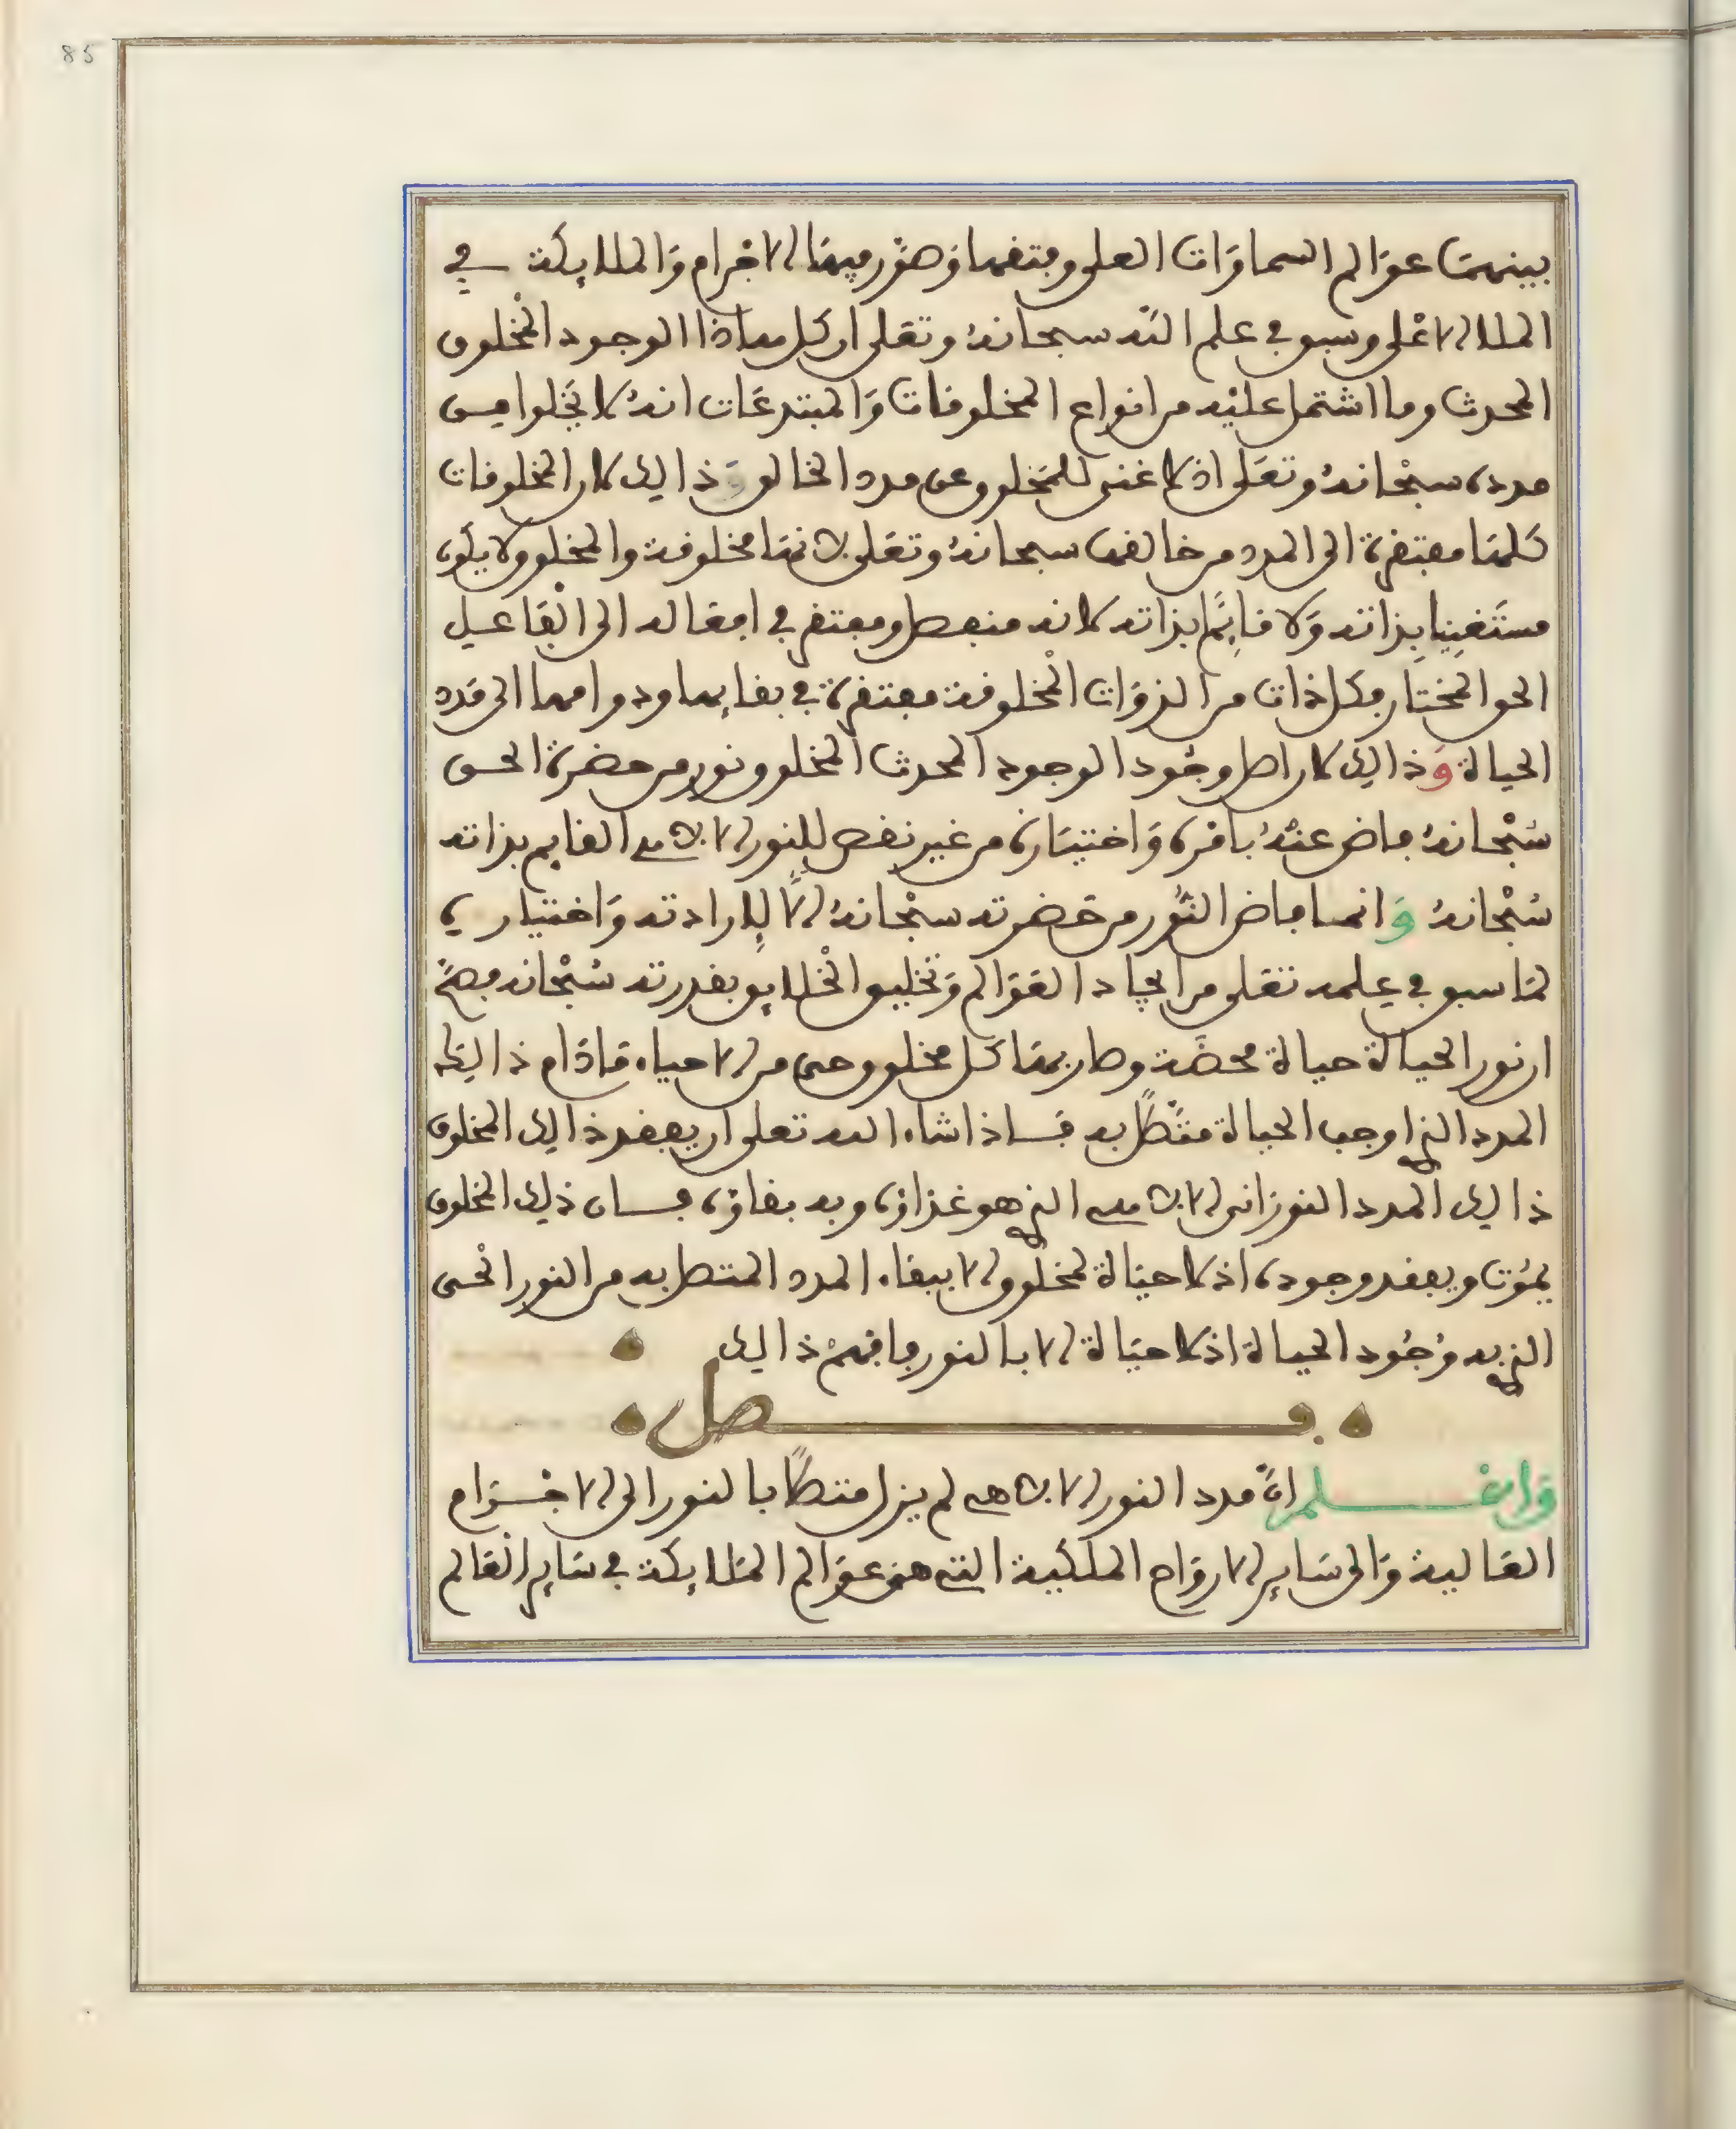 85
بينهما عوالم السماوات العلى وفتقها وصور فيها الاجرام والملايكة في
الملا الاعلى وسبق في علم الله سبحانه وتعلى ان كل هاذا الوجود المخلوق
المحدث وما اشتمل عليه من انواع المخلوقات والمبتدعات انه لا يخلوا من
مدده سبحانه وتعلى اذ لا غنى للمخلوق عن مدد الخالق وذالك لان المخلوقات
كلها مفتقرة الى المدد من خالقها سبحانه وتعلى لانها مخلوقة والمخلوق لا يكون
مستغنيا بذاته ولا قايما بذاته لانه منفعل ومفتقر في افعاله الى الفاعل
الحق المختار فكل ذات من الذوات المخلوقة مفتقرة في بقايها ودوامها الى مدد
الحياة وذالك لان اصل وجود الوجود المحدث المخلوق نور من حضرة الحق
سبحانه فاض عنه بامره واختياره من غير نقص للنور الالاهي القايم بذاته
سبحانه وانما فاض النور من حضرته سبحانه الا لارادته واختياره
لما سبق في علمه تعلى من ايجاد العوالم وتخليق الخلايق بقدرته سبحانه فصح
ان نور الحياة حياة محضة وصار بها كل مخلوق حى من الاحياء ما دام ذالك
المدد الذي اوجب الحياة متصلا به فاذا شاء الله تعلى ان يفقد ذالك المخلوق
ذالك المدد النوراني الالاهي الذي هو غذاؤه وبه بقاؤه فان ذلك المخلوق
يموت ويفقد وجوده اذ لا حياة لمخلوق الا ببقاء المدد المتصل به من النور الحى
الذي به وجود الحياة اذ لا حياة الا بالنور فافهم ذالك
فصل
واعلم ان مدد النور الالاهي لم يزل متصلا بالنور الى الاجرام
العالية والى ساير الارواح الملكية التي هي عوالم الملايكة في ساير العالم